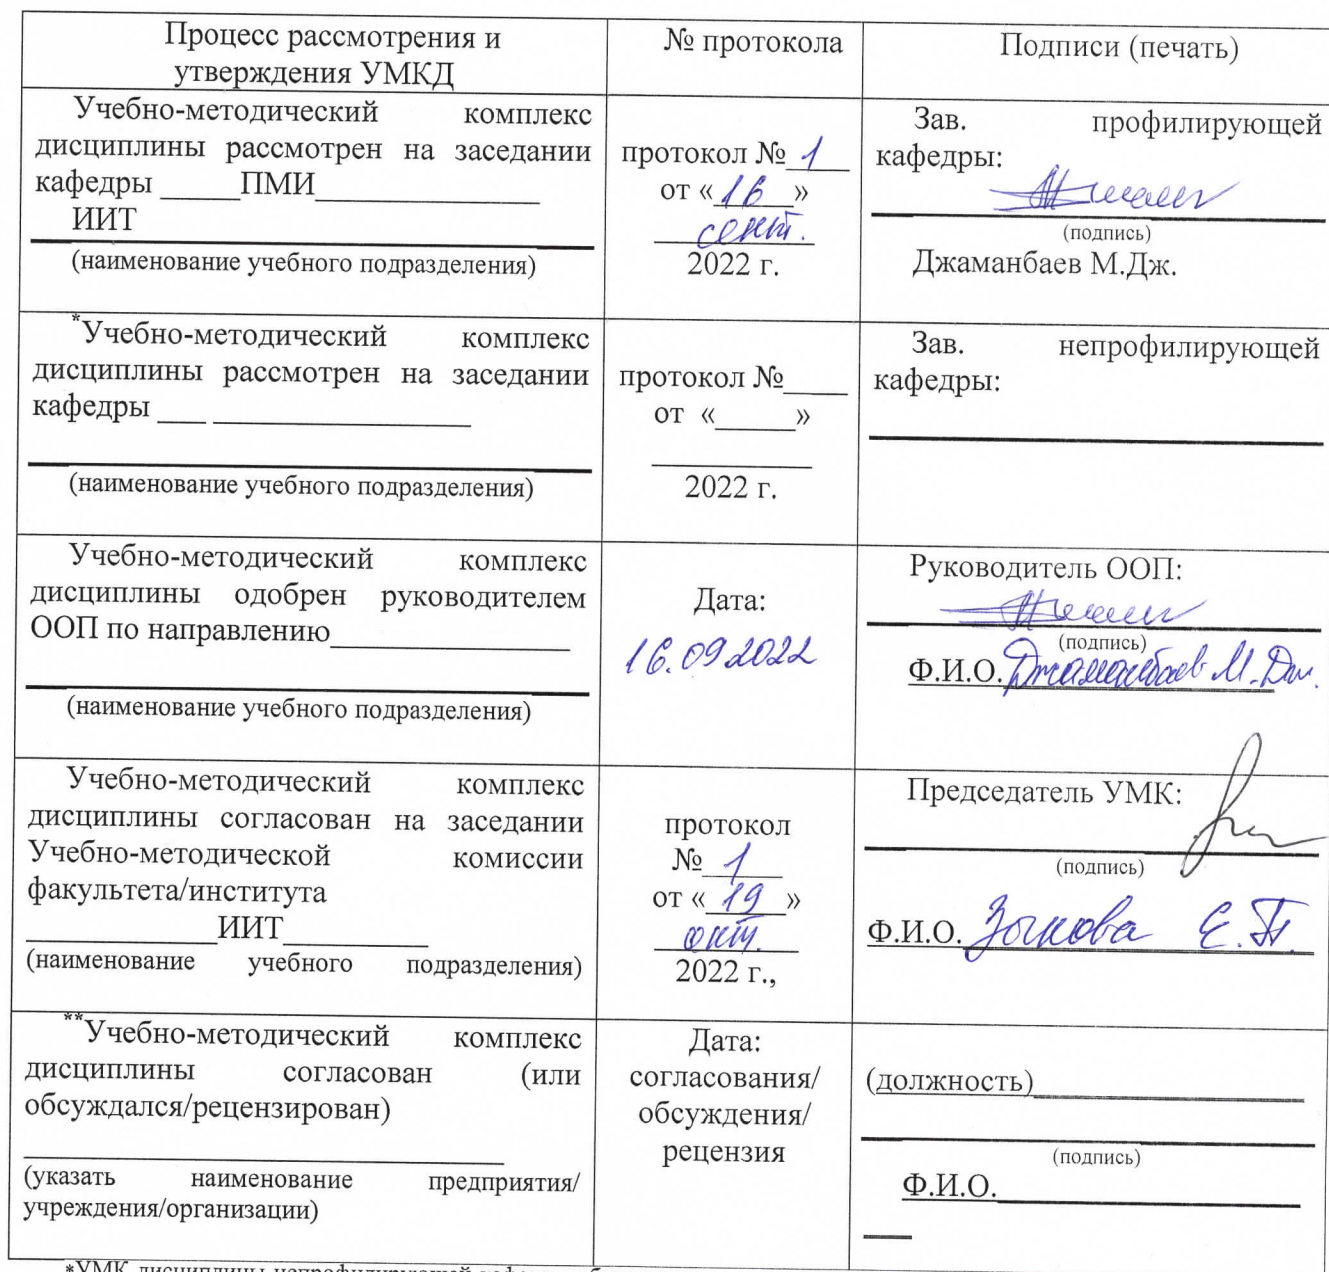 Процесс рассмотрения и
утверждения УМКД
№ протокола
Подписи (печать)
Учебно-методический комплекс
дисциплины рассмотрен на заседании
кафедры ______ПМИ_________________
ИИТ
(наименование учебного подразделения)
протокол № 1
от «16»
сент.
2022 г.
Зав. профилирующей
кафедры:
(подпись)
Джаманбаев М.Дж.
*Учебно-методический комплекс
дисциплины рассмотрен на заседании
кафедры ____ ___________________
(наименование учебного подразделения)
протокол №_____
от «______»
____________
2022 г.
Зав. непрофилирующей
кафедры:
Учебно-методический комплекс
дисциплины одобрен руководителем
ООП по направлению__________________
(наименование учебного подразделения)
Дата:
16.09.2022
Руководитель ООП:
(подпись)
Ф.И.О. Джаманбаев М.Дж.
Учебно-методический комплекс
дисциплины согласован на заседании
Учебно-методической комиссии
факультета/института
______________ИИТ___________
(наименование учебного подразделения)
протокол
№ 1
от «19»
окт.
2022 г.,
Председатель УМК:
(подпись)
Ф.И.О. Зыкова Е.П.
**Учебно-методический комплекс
дисциплины согласован (или
обсуждался/рецензирован)
(указать наименование предприятия/
учреждения/организации)
Дата:
согласования/
обсуждения/
рецензия
(должность)____________________
(подпись)
Ф.И.О.______________________
*УМК дисциплины непрофилирующей